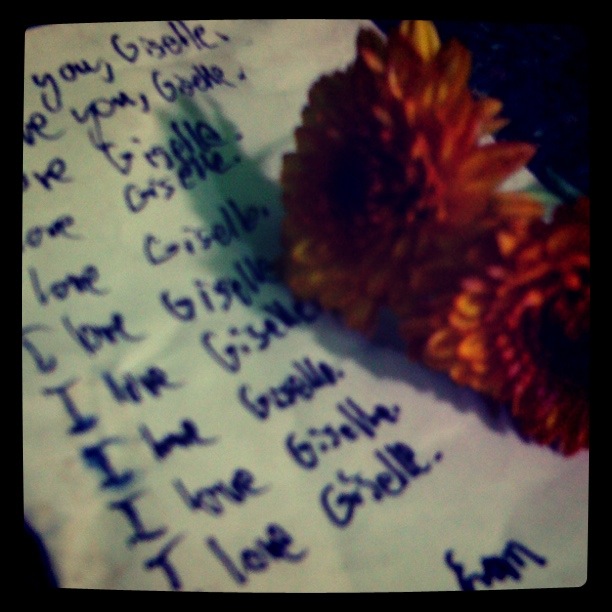 you, Giselle.
ve you, Giselle.
ove Giselle.
Giselle.
love Giselle.
love Giselle.
I love Giselle.
I love Giselle.
I love Giselle.
I love Giselle.
I love Giselle.